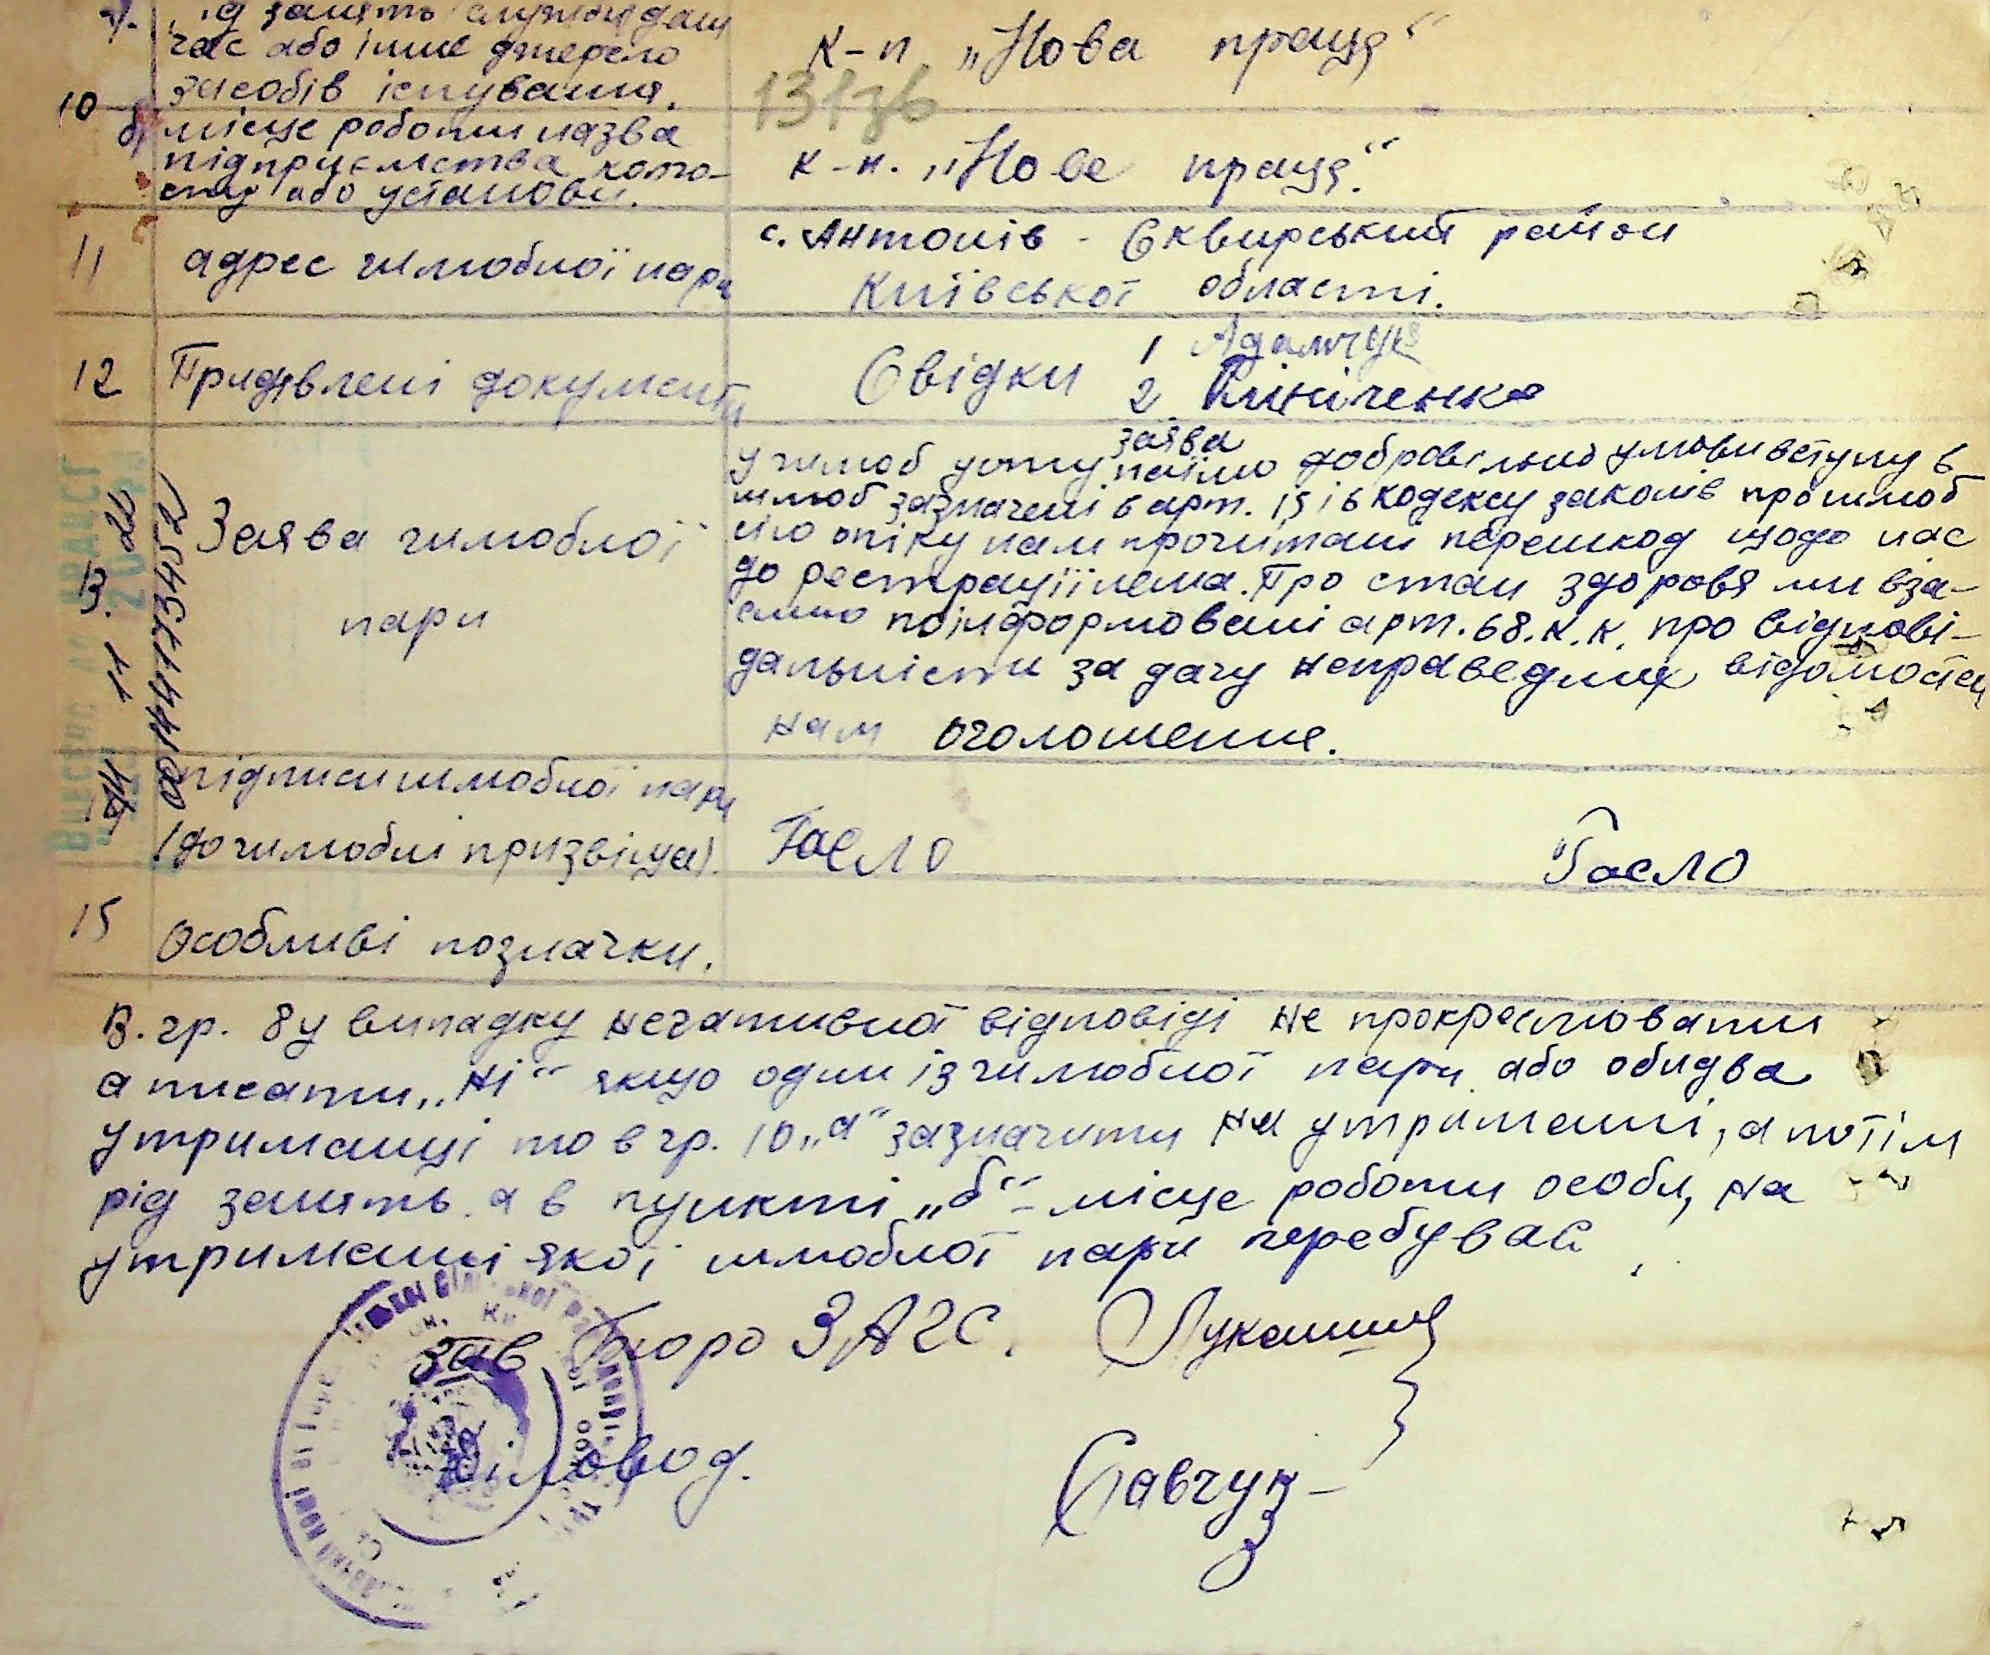 а). рід занять службу даний
час або інше джерело
засобів існування.
к-п „Нова праця“
131зв
10
б) місце роботи назва
підприємства колго-
спу або установи.
к-п. „Нова праця“.
11
адрес шлюбної пари
с. Антонів - Сквирський район
Київської області.
12
Придявлені документи
Свідки
1 Адамчук
2 Кініченко
13.
Заява шлюбної
пари
заява
у шлюб цому поїмо добровільно умови вступу в
шлюб зазначені в арт. 15 і 6 кодексу законів про шлюб
сію опіку нам прочитані перешкод щодо нас
до рестрації нема. Про стан здоровя ми вза-
ємно поінформовані арт. 68. К. К. про відпові-
дальність за дачу неправедних відомостей
нам оголошенне.
14
підписи шлюбної пари
(до шлюбні призвіща).
Гасло
Гасло
15
Особливі позначки.
В. гр. 8 у випадку негативної відповіді не прокреслювати
а писати „Ні“ якщо один із шлюбної пари або обидва
утриманці то в гр. 10 „а“ зазначити на утриманні, а потім
рід занять а в пункті „б“ - місце роботи особи, на
утриманні якої шлюбної пари перебуває
зав Бюро ЗАГС.
Діловод.
Савчук